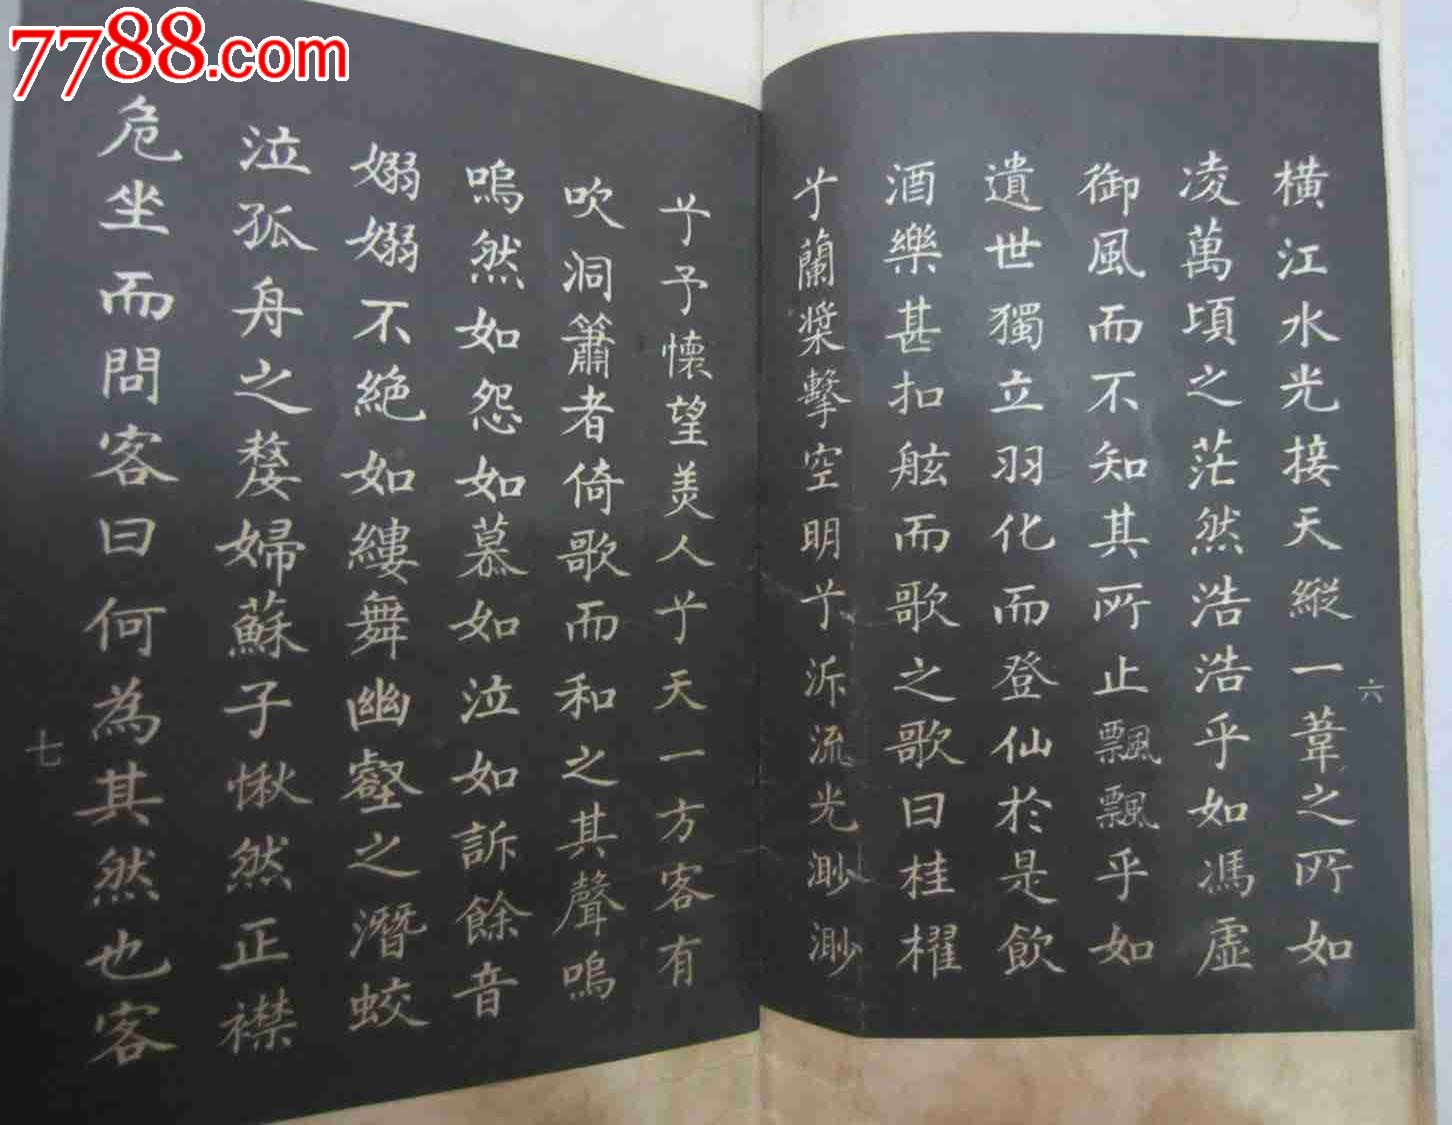 7788.com
橫江水光接天縱一葦之所如
凌萬頃之茫然浩浩乎如馮虛
御風而不知其所止飄飄乎如
遺世獨立羽化而登仙於是飲
酒樂甚扣舷而歌之歌曰桂櫂
兮蘭槳擊空明兮泝流光渺渺
六
兮予懷望美人兮天一方客有
吹洞簫者倚歌而和之其聲嗚
嗚然如怨如慕如泣如訴餘音
嫋嫋不絕如縷舞幽壑之潛蛟
泣孤舟之嫠婦蘇子愀然正襟
危坐而問客曰何為其然也客
七